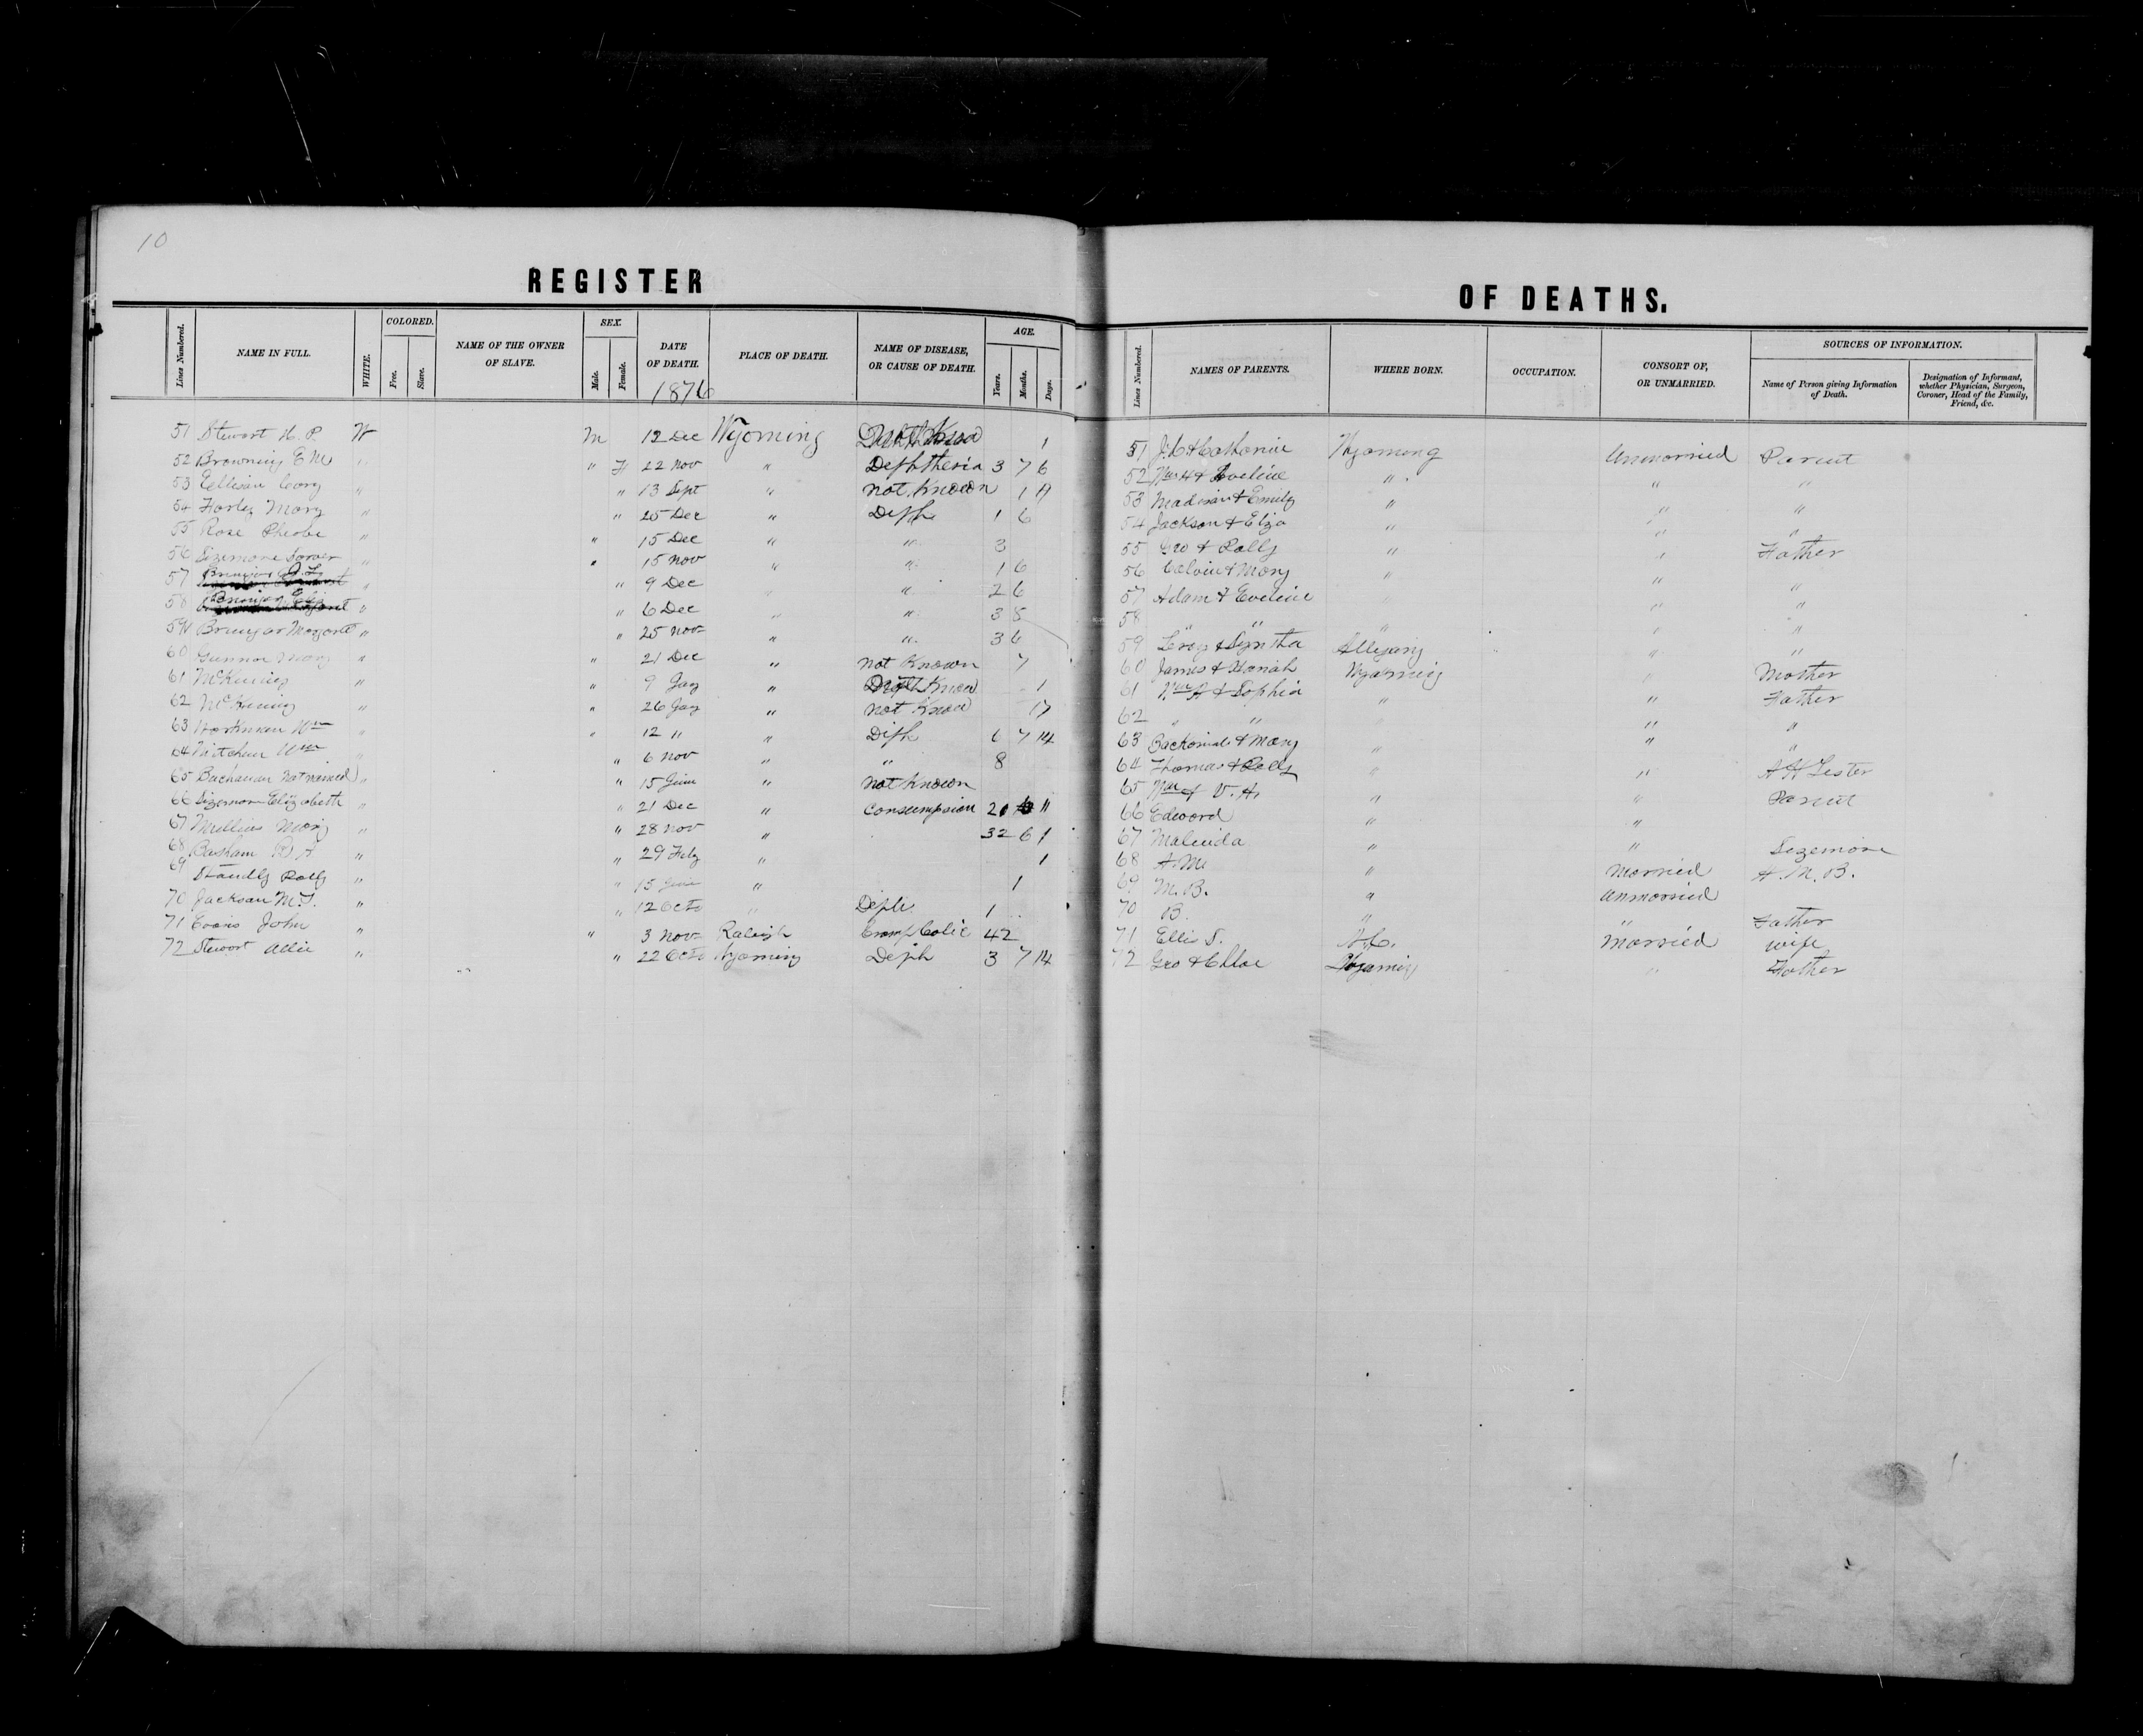 10
REGISTER
OF DEATHS.
Lines Numbered. NAME IN FULL. WHITE. COLORED. Free. Slave. NAME OF THE OWNER OF SLAVE. SEX. Male. Female. DATE OF DEATH. 1876 PLACE OF DEATH. NAME OF DISEASE, OR CAUSE OF DEATH. AGE. Years. Months. Days.
51 Stewart H. P. W M 12 Dec Wyoming 1
52 Browning E M " " F 22 Nov " Dephtheria 3 7 6
53 Ellison Cary " " 13 Sept " not Known 1
54 Farley Mary " " 25 Dec " Diph 1 6
55 Rose Pherbe " " 15 Dec " " 3
56 Sizemore " " 15 Nov " " 1 6
57 " " 9 Dec " " 2 6
58 " " 6 Dec " " 3 5
59 Margaret " " 25 Nov " " 3 6
60 Mary " " 21 Dec " not Known 7
61 McKinney " " 9 Jay " 1
62 McKinney " " 26 Jay " not Know 17
63 Workman Wm " " 12 " " Diph 6 7 14
64 Mitchem Wm " " 6 Nov " " 8
65 Buchanan Not named " " 15 June " not Known
66 Sizemore Elizabeth " " 21 Dec " Consumpsion 21 "
67 Mullins Mary " " 28 Nov " 32 6 1
68 Basham " " 29 Feby " 1
69 Standly Polly " " 15 June " 1
70 Jackson M. J. " " 12 Octo " Diph 1
71 Evans John " " 3 Nov Raleigh Cramp Colic 42
72 Stewart Allie " " 22 Octo Wyoming Diph 3 7 14
Lines Numbered. NAMES OF PARENTS. WHERE BORN. OCCUPATION. CONSORT OF, OR UNMARRIED. SOURCES OF INFORMATION. Name of Person giving Information of Death. Designation of Informant, whether Physician, Surgeon, Coroner, Head of the Family, Friend, &c.
51 J. C & Catharine Wyoming Unmarried Parent
52 Wm H & Eveline " " "
53 Madison & Emily " " "
54 Jackson & Eliza " " "
55 Geo & Polly " " Father
56 Calvin & Mary " " "
57 Adam & Eveline " " "
58 " " " " "
59 Leroy & Syntha Allegany " "
60 James & Hanah Wyoming " Mother
61 Wm A & Sophia " " Father
62 " " " " "
63 & Mary " " "
64 Thomas & Polly " " A H Lester
65 Wm & V. A. " " Parent
66 Edward " "
67 Malinda " " Sizemore
68 A. M. " Married A. M. B.
69 M. B. " Unmarried
70 B. " " Father
71 Ellis S. N. C. Married wife
72 Geo & Chloe Wyoming " Father